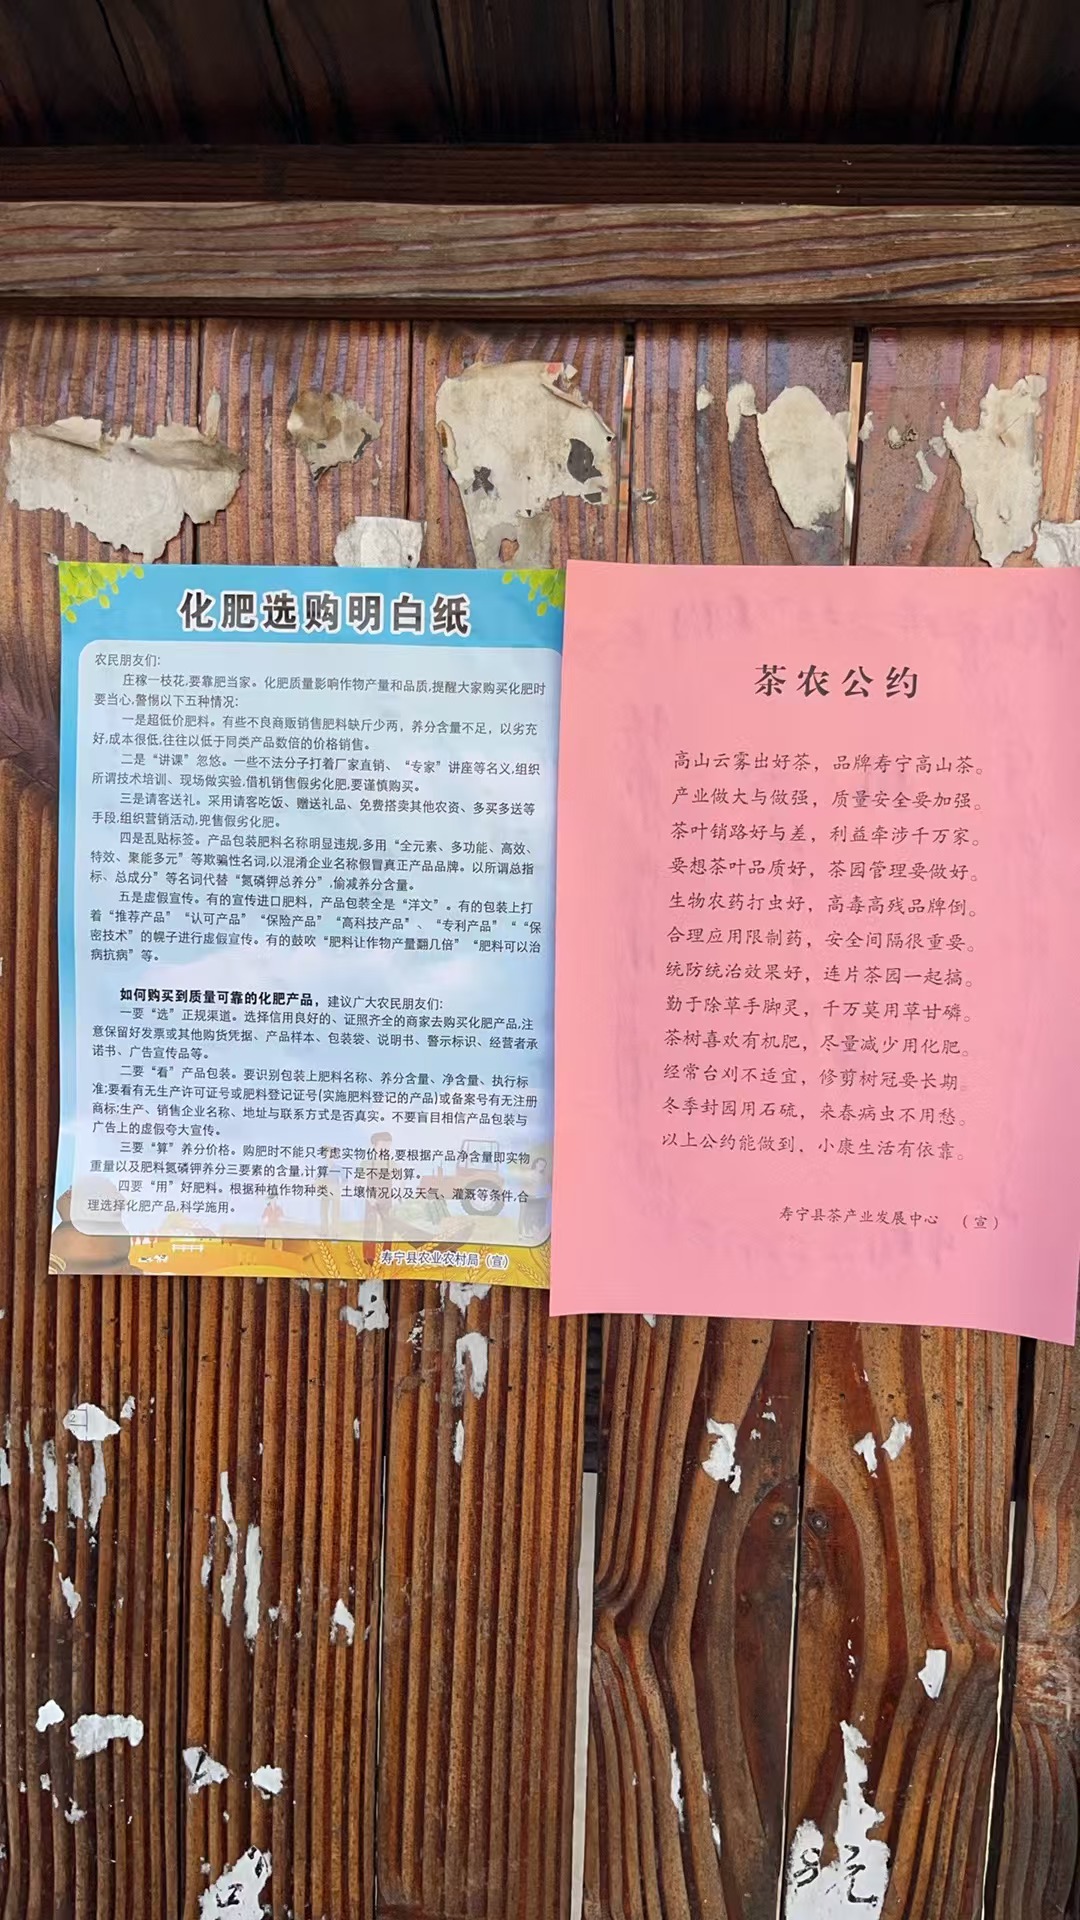 化肥选购明白纸
农民朋友们:
庄稼一枝花,要靠肥当家。化肥质量影响作物产量和品质,提醒大家购买化肥时
要当心,警惕以下五种情况:
一是超低价肥料。有些不良商贩销售肥料缺斤少两，养分含量不足，以劣充
好,成本很低,往往以低于同类产品数倍的价格销售。
二是“讲课”忽悠。一些不法分子打着厂家直销、“专家”讲座等名义,组织
所谓技术培训、现场做实验,借机销售假劣化肥,要谨慎购买。
三是请客送礼。采用请客吃饭、赠送礼品、免费搭卖其他农资、多买多送等
手段,组织营销活动,兜售假劣化肥。
四是乱贴标签。产品包装肥料名称明显违规,多用“全元素、多功能、高效、
特效、聚能多元”等欺骗性名词,以混淆企业名称假冒真正产品品牌。以所谓总指
标、总成分”等名词代替“氮磷钾总养分”,偷减养分含量。
五是虚假宣传。有的宣传进口肥料，产品包装全是“洋文”。有的包装上打
着“推荐产品”“认可产品”“保险产品”“高科技产品”、“专利产品”““保
密技术”的幌子进行虚假宣传。有的鼓吹“肥料让作物产量翻几倍”“肥料可以治
病抗病”等。
如何购买到质量可靠的化肥产品，建议广大农民朋友们：
一要“选”正规渠道。选择信用良好的、证照齐全的商家去购买化肥产品,注
意保留好发票或其他购货凭据、产品样本、包装袋、说明书、警示标识、经营者承
诺书、广告宣传品等。
二要“看”产品包装。要识别包装上肥料名称、养分含量、净含量、执行标
准;要看有无生产许可证号或肥料登记证号(实施肥料登记的产品)或备案号有无注册
商标;生产、销售企业名称、地址与联系方式是否真实。不要盲目相信产品包装与
广告上的虚假夸大宣传。
三要“算”养分价格。购肥时不能只考虑实物价格,要根据产品净含量即实物
重量以及肥料氮磷钾养分三要素的含量,计算一下是不是划算。
四要“用”好肥料。根据种植作物种类、土壤情况以及天气、灌溉等条件,合
理选择化肥产品,科学施用。
寿宁县农业农村局（宣）
茶农公约
高山云雾出好茶，品牌寿宁高山茶。
产业做大与做强，质量安全要加强。
茶叶销路好与差，利益牵涉千万家。
要想茶叶品质好，茶园管理要做好。
生物农药打虫好，高毒高残品牌倒。
合理应用限制药，安全间隔很重要。
统防统治效果好，连片茶园一起搞。
勤于除草手脚灵，千万莫用草甘磷。
茶树喜欢有机肥，尽量减少用化肥。
经常台刈不适宜，修剪树冠要长期。
冬季封园用石硫，来春病虫不用愁。
以上公约能做到，小康生活有依靠。
寿宁县茶产业发展中心 （宣）
2
元